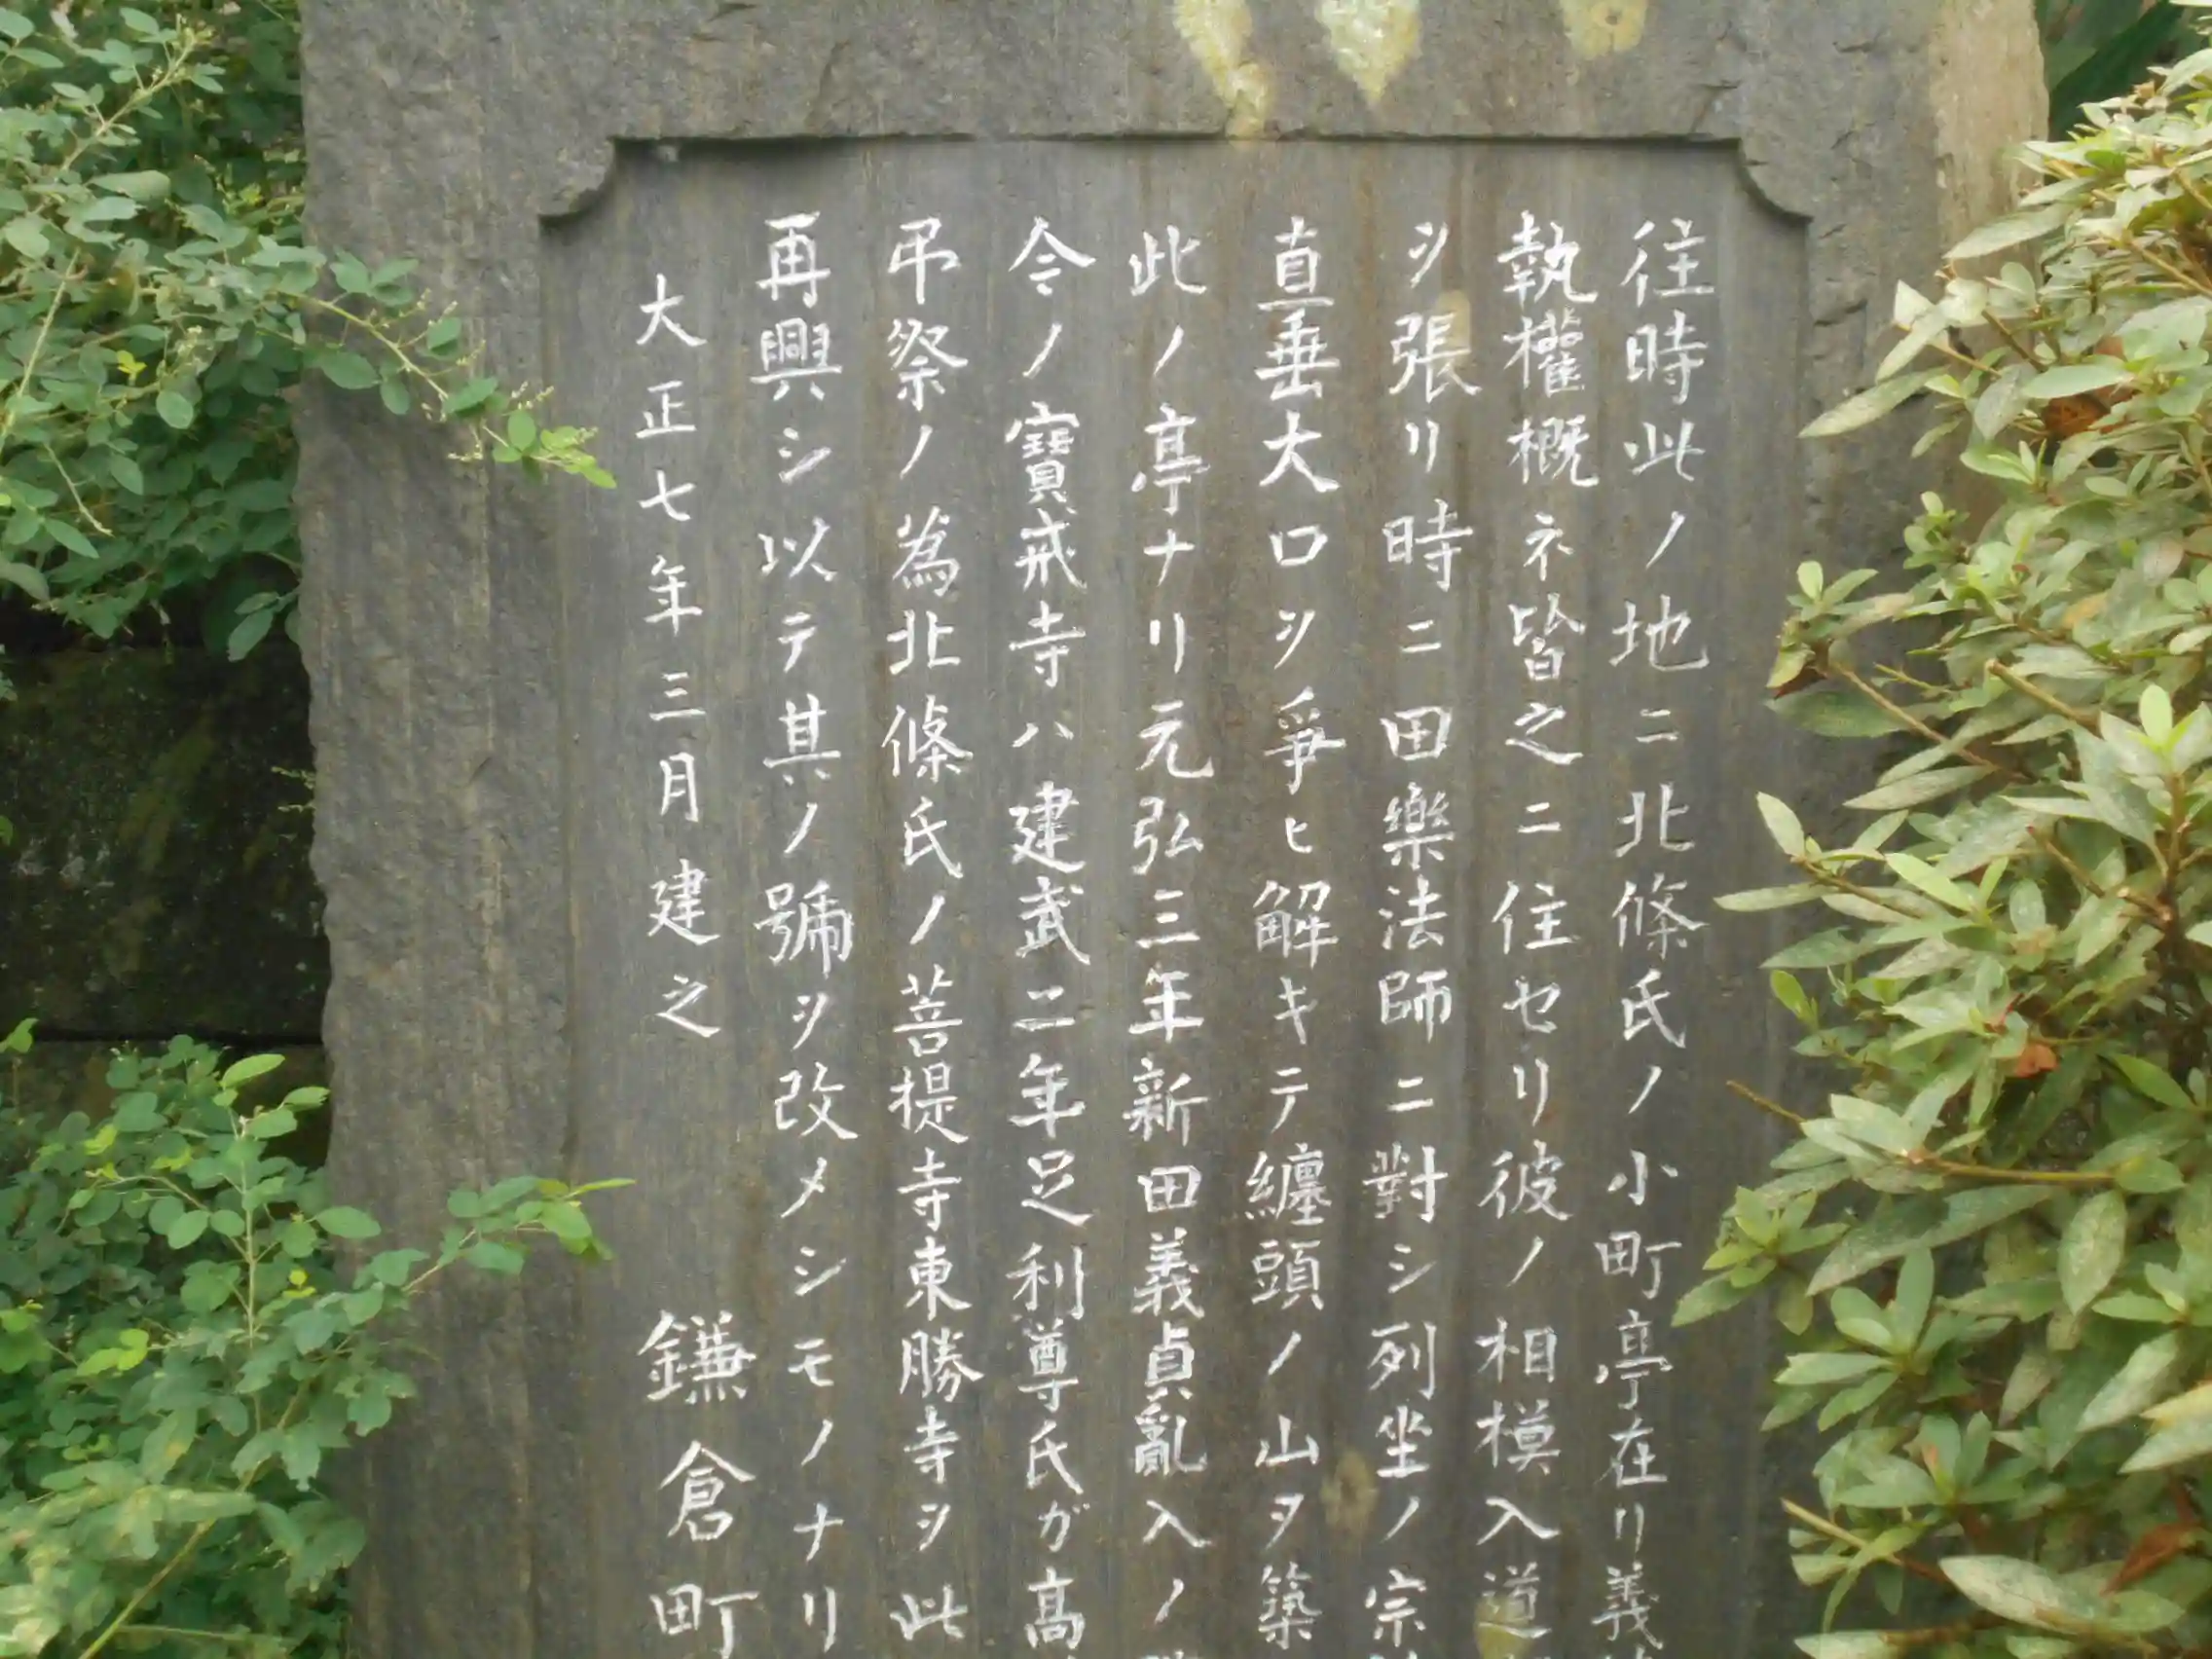 往時此ノ地ニ北條氏ノ小町亭在リ義
執權概ネ皆之ニ住セリ彼ノ相模入道
ヲ張リ時ニ田樂法師ニ對シ列坐ノ宗
直垂大口ヲ爭ヒ解キテ纏頭ノ山ヲ築
此ノ亭ナリ元弘三年新田義貞亂入ノ
今ノ寶戒寺ハ建武二年足利尊氏ガ高
弔祭ノ為北條氏ノ菩提寺東勝寺ヲ此
再興シ以テ其ノ號ヲ改メシモノナリ
大正七年三月建之 鎌倉町